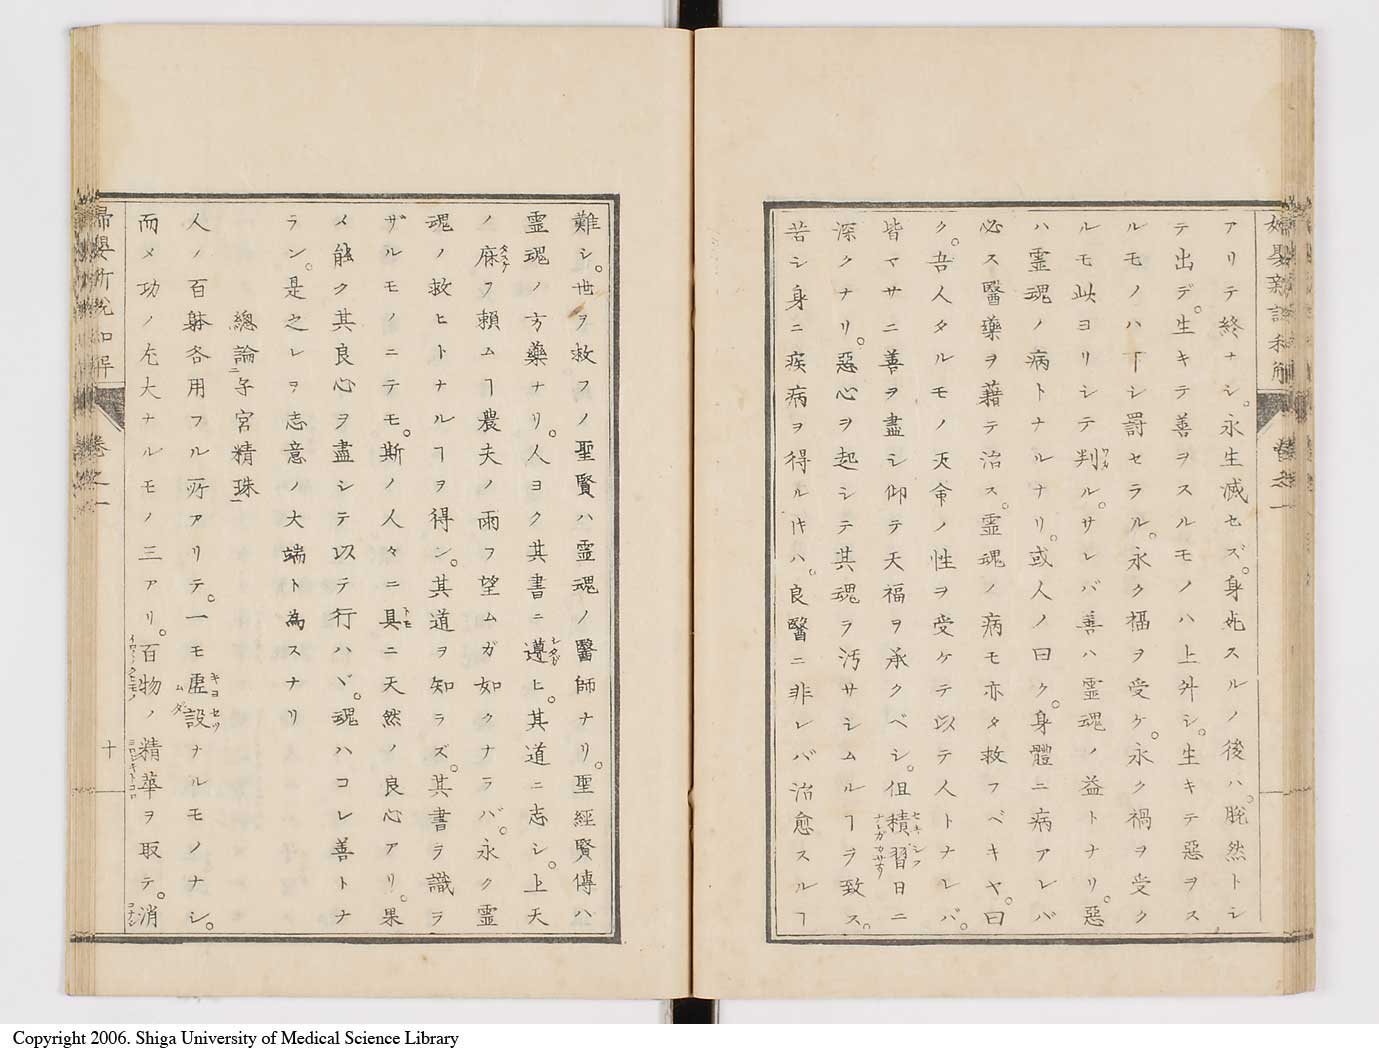 婦嬰新説和解 卷之一
アリテ終ナシ。永生滅セズ。身死スルノ後ハ。脱然トシ
テ出デ。生キテ善ヲスルモノハ上升シ。生キテ惡ヲス
ルモノハ下シ罸セラル。永ク福ヲ受ケ。永ク禍ヲ受ク
ルモ此ヨリシテ判ル。サレバ善ハ霊魂ノ益トナリ。惡
ハ霊魂ノ病トナルナリ。或人ノ曰ク。身體ニ病アレバ
必ス醫藥ヲ藉テ治ス。霊魂ノ病モ亦タ救フベキヤ。曰
ク。吾人タルモノ天命ノ性ヲ受ケテ以テ人トナレバ。
皆マサニ善ヲ盡シ仰テ天福ヲ承クベシ。但積習日ニ
深クナリ。惡心ヲ起シテ其魂ヲ汚サシムルヿヲ致ス。
苦シ身ニ疾病ヲ得ル𪜈ハ。良醫ニ非レバ治愈スルヿ
難シ。世ヲ救フノ聖賢ハ霊魂ノ醫師ナリ。聖經賢傳ハ
霊魂ノ方藥ナリ。人ヨク其書ニ遵ヒ。其道ニ志シ。上天
ノ庥フ頼ムヿ農夫ノ雨フ望ムガ如クナラバ。永ク霊
魂ノ救ヒトナルヿヲ得ン。其道ヲ知ラズ。其書ラ識ラ
ザルモノニテモ。斯ノ人々ニ具ニ天然ノ良心アリ。果
メ能ク其良心ヲ盡シテ以テ行ハヾ。魂ハコレ善トナ
ラン。是之レヲ志意ノ大端ト為スナリ
總論子宮精珠
人ノ百躰各用フル所アリテ。一モ虚設ナルモノナシ。
而メ功ノ尤大ナルモノ三アリ。百物ノ精華ヲ取テ。消
婦嬰新説和解 卷之一 十